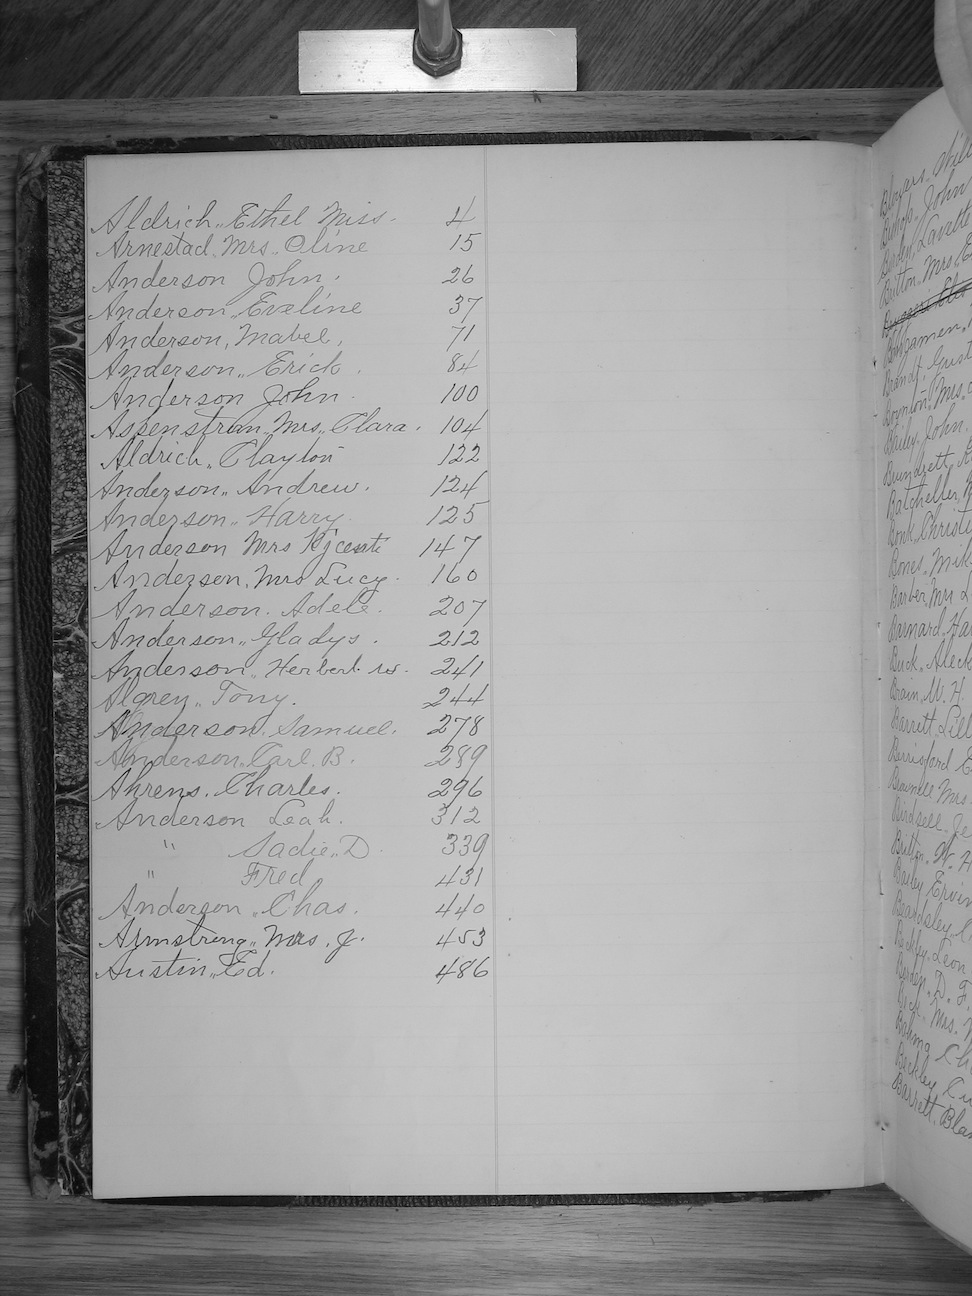 Aldrich,, Ethel Miss. 4
Arnestad, Mrs,, Oline 15
Anderson John. 26
Anderson,, Eveline 37
Anderson, Mabel, 71
Anderson,, Erick. 84
Anderson John. 100
Aspenstran, Mrs,, Clara. 104
Aldrich,, Clayton 122
Anderson,, Andrew. 124
Anderson,, Harry. 125
Anderson Mrs 147
Anderson, Mrs Lucy. 160
Anderson. Adele. 207
Anderson,, Gladys. 212
Anderson,, Herbert w. 241
Algrey,, Tony. 244
Anderson, Samuel. 278
Anderson, Carl. B. 289
Ahrens. Charles. 296
Anderson Leah. 312
" Sadie,, D. 339
" Fred, 431
Anderson,, Chas. 440
Armstrong,, Mrs. J. 453
Austin,, Ed. 486
Bishop,, John
Britton,, Mrs
Brandt, Gust
Boynton, Mrs.
Bailey, John.
Brundrett
Batcheller,
Bonk, Christ
Bones,, Mik
Barber, Mrs L
Barnard, Har
Buck,, Aleck
Brain, W. H.
Barrett, Lill
Berrisford E
Brambee Mrs
Birdsell, Je
Britton,, W. H
Bailey Ervin
Beardsley, C
Beckley, Leon
D. F.
Beck,, Mrs.
Bahma Cha
Beckley, Cu
Barrett. Blan